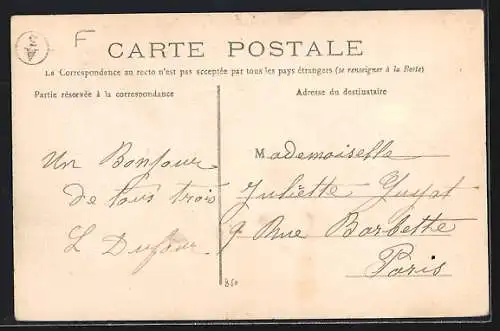 F
CARTE POSTALE
La Correspondance au recto n'est pas acceptée par tous les pays étrangers (se renseigner à la Poste)
Partie réservée à la correspondance
Adresse du destinataire
Un Bonjour
de tous trois
L Dufour.
Mademoiselle
Juliette Guyot
9 Rue Barbette
Paris